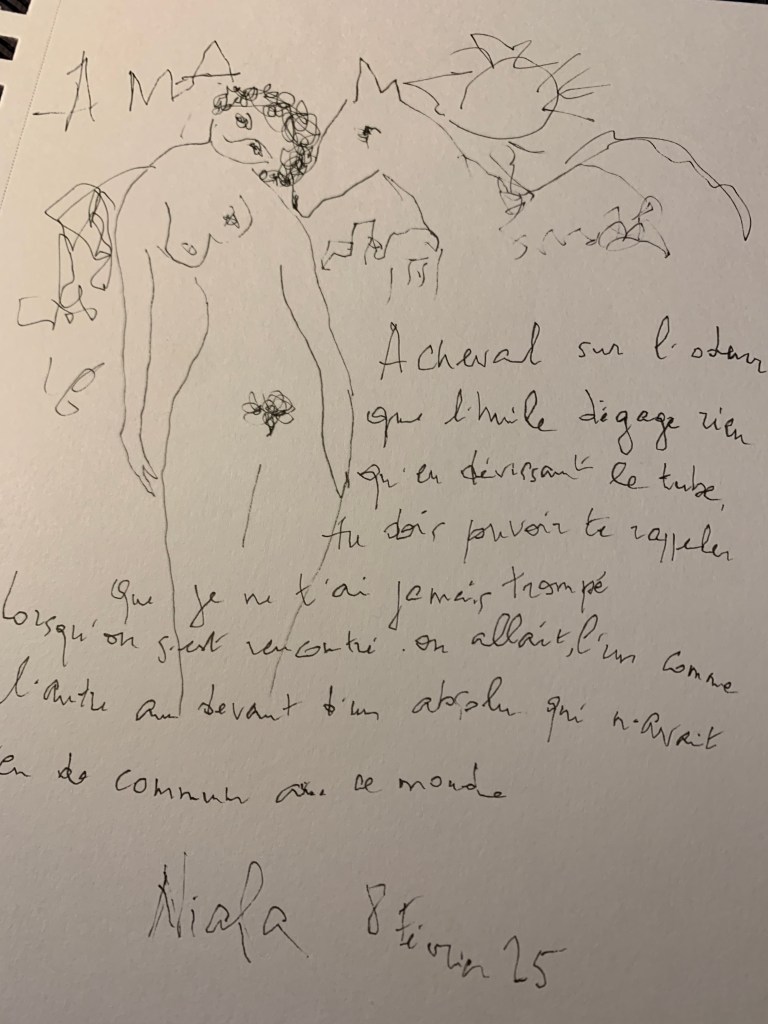 A MA
A cheval sur l'odeur
que l'huile dégage rien
qu'en dévissant le tube,
tu dois pouvoir te rappeler
que je ne t'ai jamais trompé
Lorsqu'on s'est rencontré on allait, l'un comme
l'autre au devant d'un absolu qui n'avait
en de commun ce monde
Niala 8 Février 25